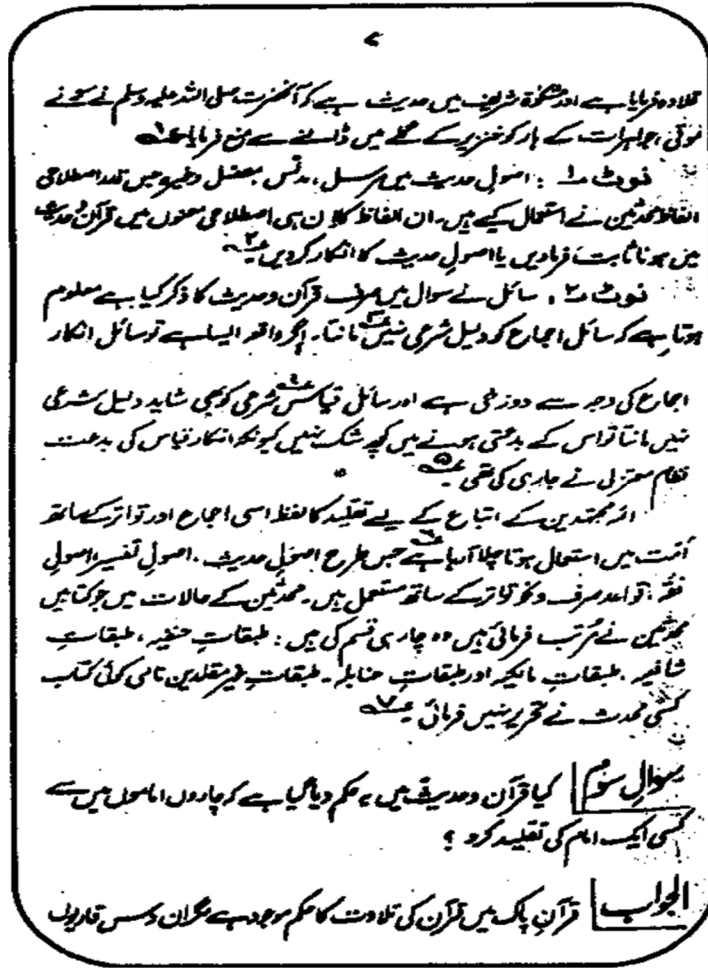 ۷
قلادہ فرمایا ہے اور مشکوٰۃ شریف میں حدیث ہے کہ آنحضرت صلی اللہ علیہ وسلم نے سونے
موتی، جواہرات کے ہار کو خنزیر کے گلے میں ڈالنے سے منع فرمایا ۱
نوٹ ۱ : اصولِ حدیث میں مرسل، مدلس، معضل وغیرہ جس قدر اصطلاحی
الفاظ محدثین نے استعمال کیے ہیں۔ ان الفاظ کا ان ہی اصطلاحی معنوں میں قرآن و حدیث
میں ہونا ثابت فرمادیں یا اصولِ حدیث کا انکار کردیں ۲
نوٹ ۲ : سائل نے سوال میں صرف قرآن و حدیث کا ذکر کیا ہے معلوم
ہوتا ہے کہ سائل اجماع کو دلیل شرعی نہیں ۳ مانتا۔ اگر واقعہ ایسا ہے تو سائل انکار
اجماع کی وجہ سے دوزخی ہے اور سائل قیاس ۴ شرعی کو بھی شاید دلیل شرعی
نہیں مانتا تو اس کے بدعتی ہونے میں کچھ شک نہیں کیونکہ انکار قیاس کی بدعت
نظام معتزلی نے جاری کی تھی ۵
ائمہ مجتہدین کے اتباع کے لیے تقلید کا لفظ اسی اجماع اور تواتر کے ساتھ
اُمت میں استعمال ہوتا چلا آرہا ہے ۶ جس طرح اصولِ حدیث، اصولِ تفسیر، اصولِ
فقہ، قواعد صرف و نحو تواتر کے ساتھ مستعمل ہیں۔ محدثین کے حالات میں جو کتابیں
محدثین نے مرتب فرمائی ہیں وہ چار ہی قسم کی ہیں : طبقاتِ حنفیہ، طبقاتِ
شافعیہ، طبقاتِ مالکیہ اور طبقاتِ حنابلہ۔ طبقاتِ غیر مقلدین نامی کوئی کتاب
کسی محدث نے تحریر نہیں فرمائی ۷
سوالِ سوم کیا قرآن و حدیث میں یہ حکم دیا گیا ہے کہ چاروں اماموں میں سے
کسی ایک امام کی تقلید کرو ؟
الجواب قرآنِ پاک میں قرآن کی تلاوت کا حکم موجود ہے مگر ان دس قاریوں